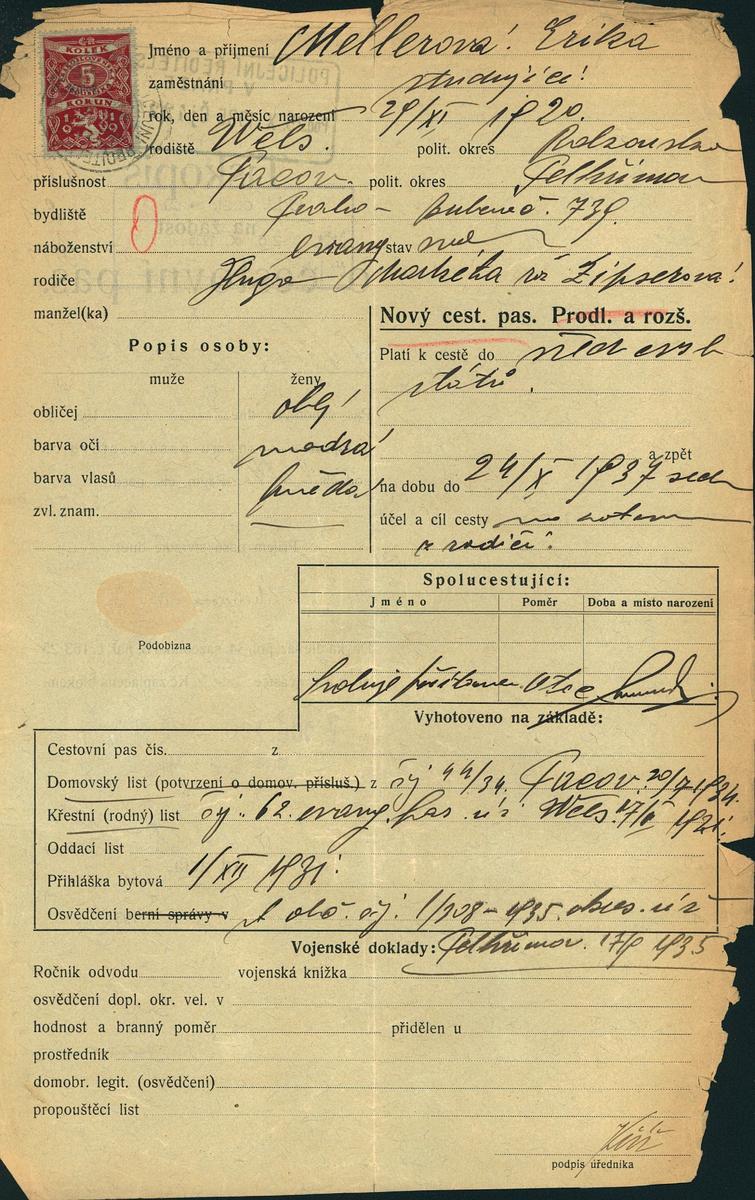 ČR
KOLEK
5
KORUN
1919
Jméno a příjmení Mellerová! Erika
zaměstnání studující!
rok, den a měsíc narození 29/XI 1920.
rodiště Wels. polit. okres Rakousko
příslušnost Pacov. polit. okres Pelhřimov
bydliště Praha - Bubeneč. 739.
náboženství evang stav
rodiče Hugo Markéta roz Zipserová!
manžel(ka)
Nový cest. pas. Prodl. a rozš.
Popis osoby:
Platí k cestě do všech evrop.
muže ženy
států.
obličej oblý
barva očí modrá
a zpět
barva vlasů hnědá
na dobu do 24/X 1937
zvl. znam.
účel a cíl cesty
s rodiči.
Spolucestující:
Jméno Poměr Doba a místo narození
Podobizna
otec
Vyhotoveno na základě:
Cestovní pas čís. z
Domovský list (potvrzení o domov. přísluš.) z čj 44/34. Pacov. 20/7 1934.
Křestní (rodný) list čj. 62. evang. far. úř. Wels. 1921.
Oddací list
Přihláška bytová 1/XII 1931.
Osvědčení berní správy v st. obč. čj. 1/208 - 1935. okres. úř
Vojenské doklady: Pelhřimov. 1935
Ročník odvodu vojenská knížka
osvědčení dopl. okr. vel. v
hodnost a branný poměr přidělen u
prostředník
domobr. legit. (osvědčení)
propouštěcí list
podpis úředníka